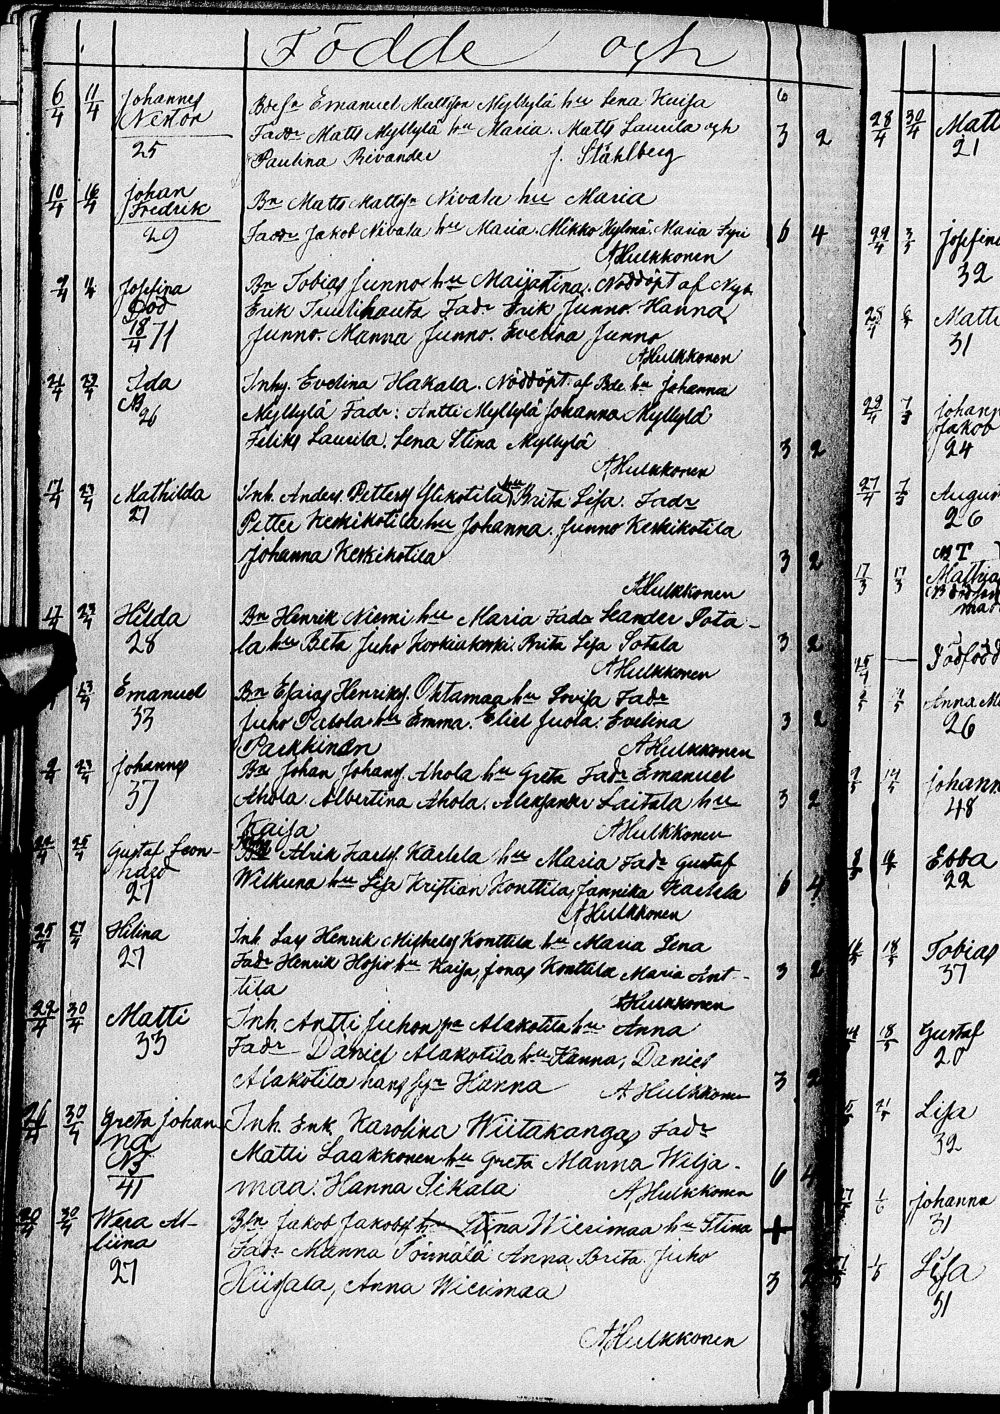 Födde och
6/4 11/4 Johannes Bdesn Emanuel Mattsson Myllylä hu Lena Kaisa 6
Nestor Fadr Matts Myllylä hu Maria. Matts Laurila och 3 2
25 Paulina Rivander J. Ståhlberg
10/4 16/4 Johan Bn Matts Mattsn Nivala hu Maria
Fredrik
29 Fadr Jakob Nivala hu Maria. Mikko Kylmä, Maria 6 4
AHulkkonen
Josefina Bn Tobias Junno hu Maijastina. Nöddöpt af
Död Erik Fadr Erik Junno. Hanna
18/4 71 Junno. Manna Junno. Evelina Junno
AHulkkonen
21/4 23/4 Ida Inhy. Evelina Hakala. Nöddöpt af Bde. hu Johanna
26 Myllylä Fadr: Antti Myllylä Johanna Myllylä
Feliks Laurila. Lena Stina Myllylä 3 2
AHulkkonen
17/4 23/4 Mathilda Inh. Anders Petterss Ylikotila hu Brita Lisa. Fadr
27 Petter Keskikotila hu Johanna. Junno Keskikotila
Johanna Keskikotila 3 2
AHulkkonen
17/4 23/4 Hilda Bn Henrik Niemi hu Maria Fadr Leander Sota-
28 la hu Beta Juho Korkiakoski. Brita Lisa Sotala 3 2
AHulkkonen
23/4 Emanuel Bn Esaias Henrikss. Ohtamaa hu Lovisa Fadr
33 Juho Patola hu Emma. Eliel Juola. Evelina 3 2
Parkkinen AHulkkonen
23/4 Johannes Bn Johan Johanss. Ahola hu Greta Fadr Emanuel
37 Ahola. Albertina Ahola. Aleksander Laitala hu 3 2
Kaisa AHulkkonen
25/4 Gustaf Leon- Alrik Karlss. Karlela hu Maria Fadr Gustaf
hard
27 Wilkuna hu Lisa Kristian Konttila, Jannika Karlela 6 4
AHulkkonen
25/4 27/4 Hilina Inh Lars Henrik Mickelss Konttila hu Maria Lena
27 Fadr Henrik hu Kaisa, Jonas Konttila Maria Ant-
tila 3 2
AHulkkonen
22/4 30/4 Matti Inh. Antti Juhon pn Alakotila hu Anna
33 Fadr Daniel Alakotila hu Hanna, Daniel
Alakotila hans syr Hanna 3 2
AHulkkonen
26/4 30/4 Greta Johan- Inh. Enk. Karolina Wiitakangas Fadr
na Matti Laakkonen hu Greta Manna Wilja-
41 maa. Hanna Pikala 6 4
AHulkkonen
20/4 30/4 Wera Al- Bn Jakob Jakobss hu Stina Wierimaa hu Stina 1
liina Fadr Manna Sörmälä Anna Brita Juho
27 Hiisala, Anna Wierimaa 3 2
AHulkkonen
28/4 30/4 Matt
21
29/4 3/5 Josefin
32
Matti
31
29/4 Johan
Jakob
24
27/4 Augus
26
17/3 17/3 Mathia
Dödfödd
Anna Ma
26
Johann
48
Ebba
22
18/5 Tobias
37
18/5 Gustaf
20
Lisa
32
Johanna
31
Lisa
31